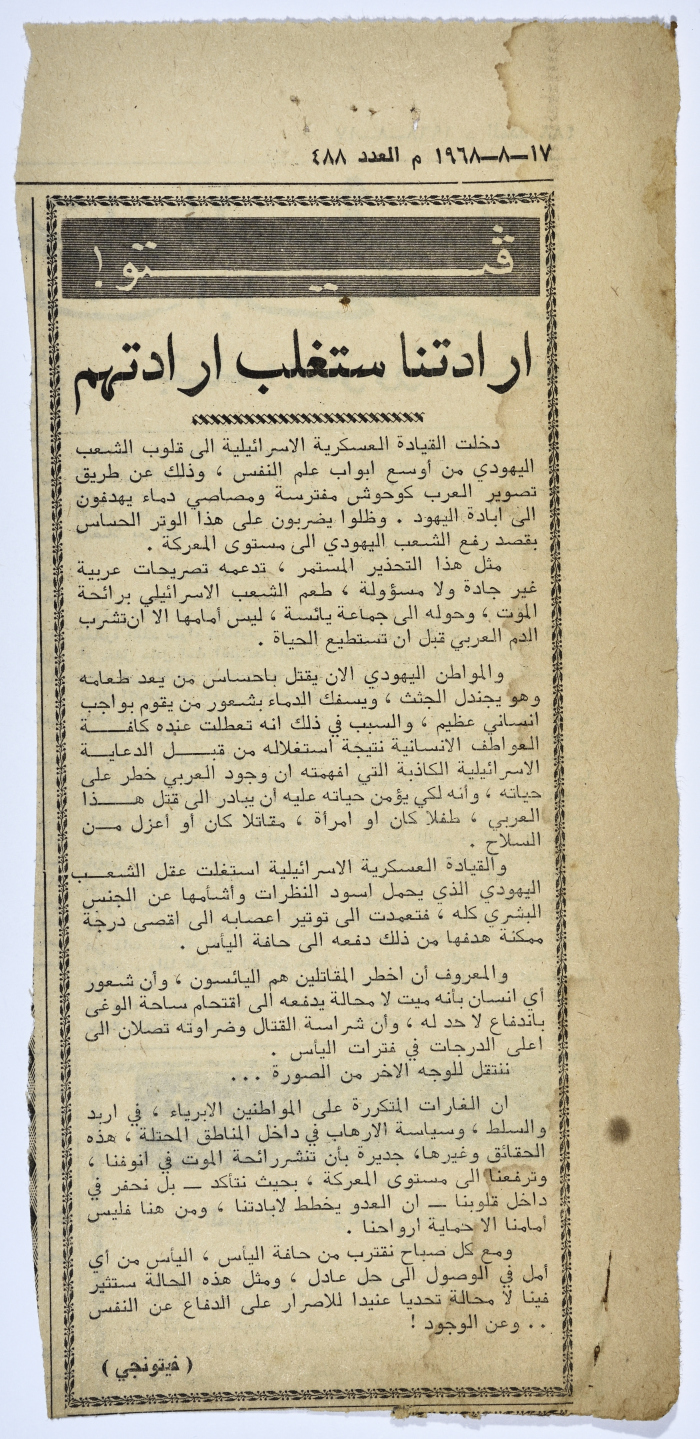 ١٧–٨–١٩٦٨ م العدد ٤٨٨
ڤيتو !
ارادتنا ستغلب ارادتهم
دخلت القيادة العسكرية الاسرائيلية الى قلوب الشعب
اليهودي من أوسع ابواب علم النفس ، وذلك عن طريق
تصوير العرب كوحوش مفترسة ومصاصي دماء يهدفون
الى ابادة اليهود . وظلوا يضربون على هذا الوتر الحساس
بقصد رفع الشعب اليهودي الى مستوى المعركة .
مثل هذا التحذير المستمر ، تدعمه تصريحات عربية
غير جادة ولا مسؤولة ، طعم الشعب الاسرائيلي برائحة
الموت ، وحوله الى جماعة يائسة ، ليس أمامها الا ان تشرب
الدم العربي قبل ان تستطيع الحياة .
والمواطن اليهودي الان يقتل باحساس من يعد طعامه
وهو يجندل الجثث ، ويسفك الدماء بشعور من يقوم بواجب
انساني عظيم ، والسبب في ذلك انه تعطلت عنده كافة
العواطف الانسانية نتيجة استغلاله من قبل الدعاية
الاسرائيلية الكاذبة التي افهمته ان وجود العربي خطر على
حياته ، وأنه لكي يؤمن حياته عليه أن يبادر الى قتل هذا
العربي ، طفلا كان او امرأة ، مقاتلا كان أو أعزل من
السلاح .
والقيادة العسكرية الاسرائيلية استغلت عقل الشعب
اليهودي الذي يحمل اسود النظرات وأشأمها عن الجنس
البشري كله ، فتعمدت الى توتير اعصابه الى اقصى درجة
ممكنة هدفها من ذلك دفعه الى حافة اليأس .
والمعروف أن اخطر المقاتلين هم اليائسون ، وأن شعور
أي انسان بأنه ميت لا محالة يدفعه الى اقتحام ساحة الوغى
باندفاع لا حد له ، وأن شراسة القتال وضراوته تصلان الى
اعلى الدرجات في فترات اليأس .
ننتقل للوجه الاخر من الصورة ...
ان الغارات المتكررة على المواطنين الابرياء ، في اربد
والسلط ، وسياسة الارهاب في داخل المناطق المحتلة ، هذه
الحقائق وغيرها، جديرة بأن تنشر رائحة الموت في انوفنا ،
وترفعنا الى مستوى المعركة ، بحيث نتأكد — بل نحفر في
داخل قلوبنا — ان العدو يخطط لابادتنا ، ومن هنا فليس
أمامنا الا حماية ارواحنا .
ومع كل صباح نقترب من حافة اليأس ، اليأس من أي
أمل في الوصول الى حل عادل ، ومثل هذه الحالة ستثير
فينا لا محالة تحديا عنيدا للاصرار على الدفاع عن النفس
.. وعن الوجود !
( فيتونجي )